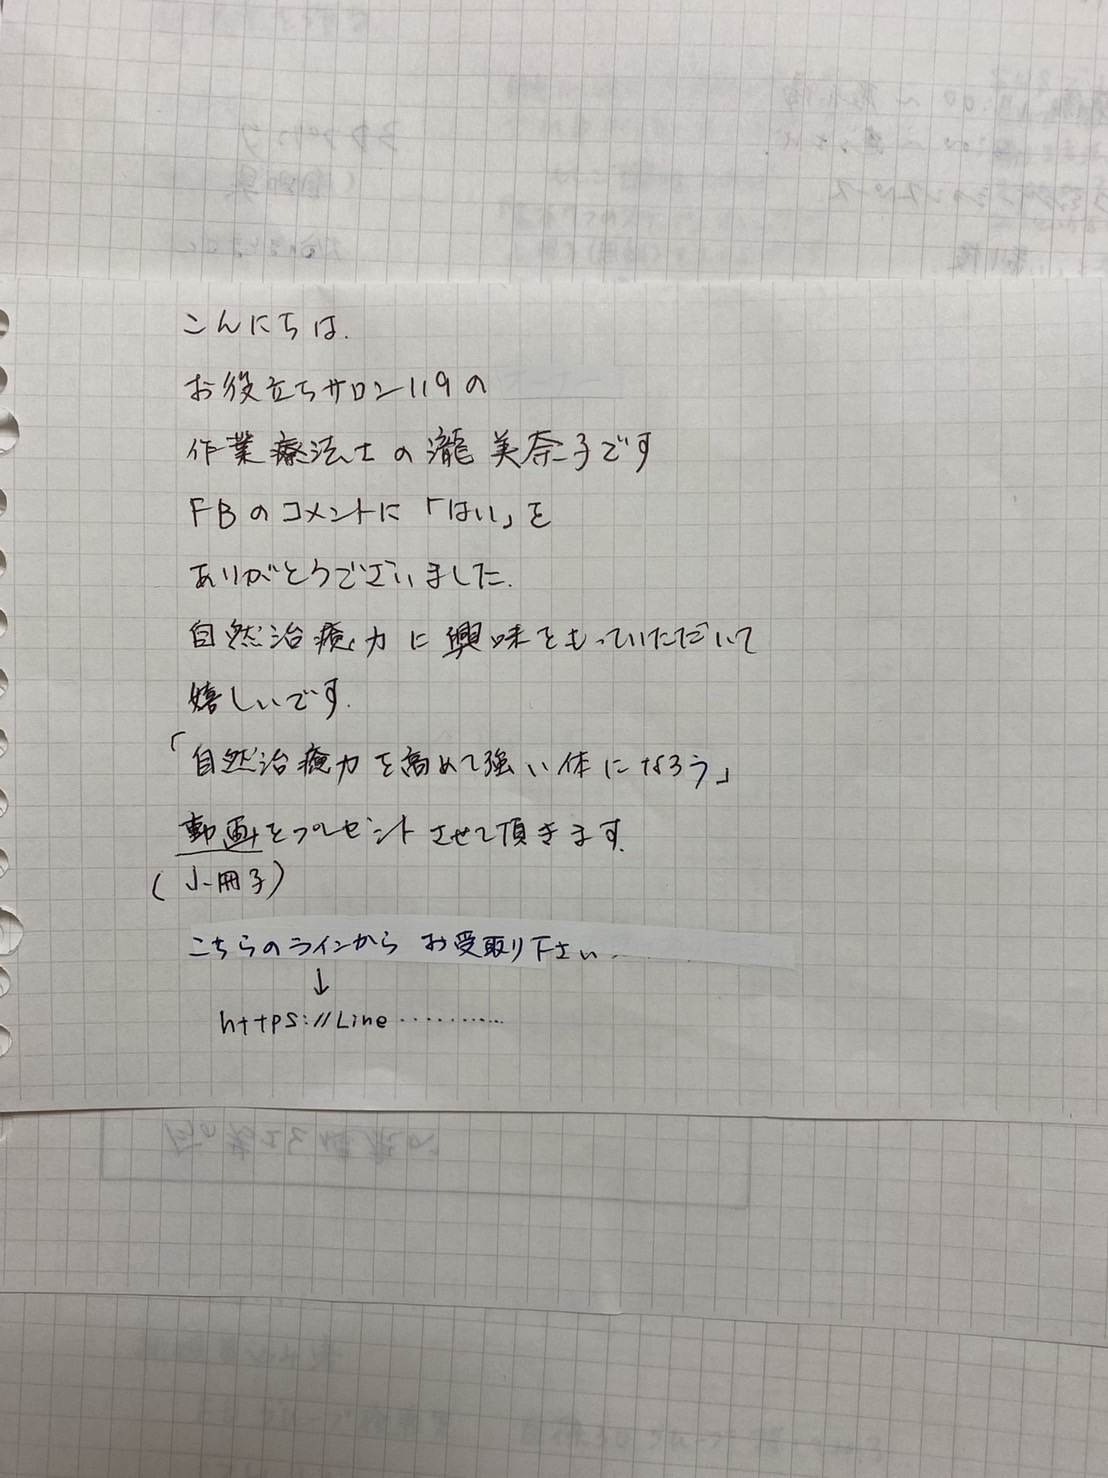 こんにちは.
お役立ちサロン119の
作業療法士の瀧 美奈子です
FBのコメントに「はい」を
ありがとうございました.
自然治癒力に興味をもっていただいて
嬉しいです.
「自然治癒力を高めて強い体になろう」
動画をプレゼントさせて頂きます.
(小冊子)
こちらのラインから お受取り下さい...
↓
https://Line..........